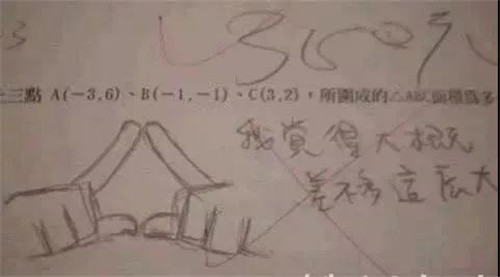 三點 A(-3,6)、B(-1,-1)、C(3,2),所圍成的△ABC面積為多
我覺得大概
差不多這麼大